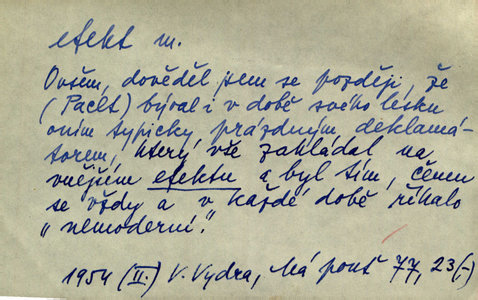 efekt m.
Ovšem, dověděl jsem se později, že
(Paclt) býval i v době svého lesku
oním typicky prázdným deklamá-
torem, který vše zakládal na
vnějším efektu a byl tím, čemu
se vždy a v každé době říkalo
„nemoderní".
1954 (II.) V. Vydra, Má pouť 77, 23 (,-)